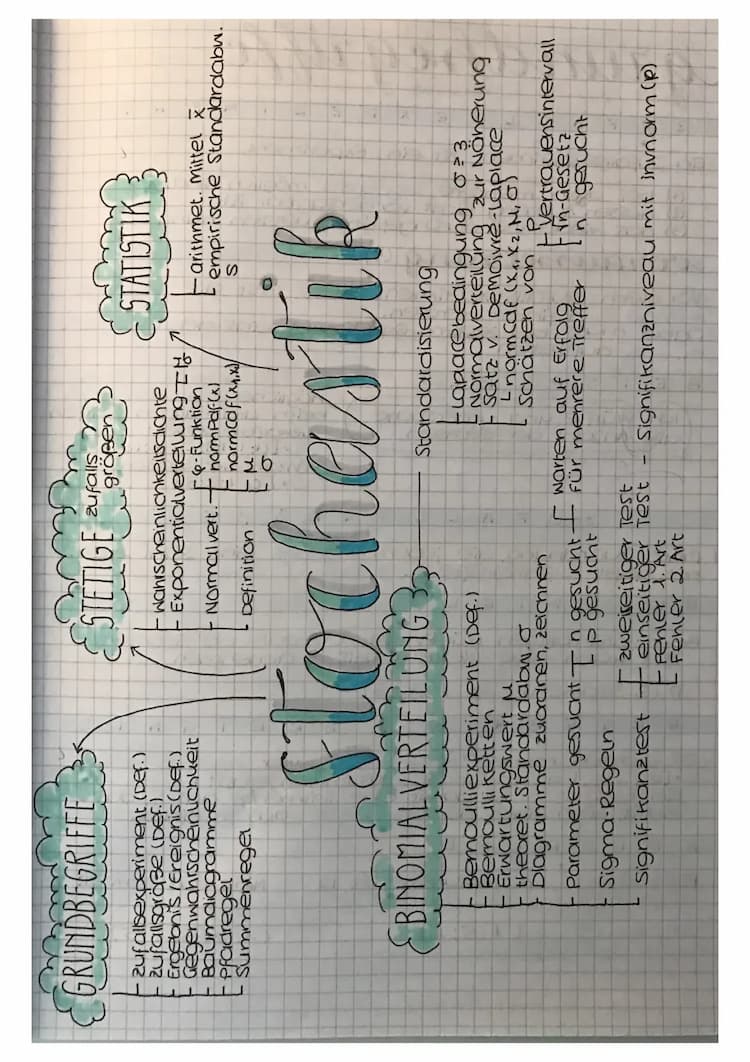 Stochastik
GRUNDBEGRIFFE
- Zufallsexperiment (Def.)
- Zufallsgröße (Def.)
- Ergebnis / Ereignis (Def.)
- Gegenwahrscheinlichkeit
- Baumdiagramme
- Pfadregel
- Summenregel
STETIGE zufalls
größen
- Wahrscheinlichkeitsdichte
- Exponentialverteilung - μ
σ
- Normalvert. - φ-Funktion
- normPdf(x)
- normCdf(x₁,x₂)
- μ
- σ
- Definition
STATISTIK
- arithmet. Mittel x̅
- empirische Standardabw.
s
BINOMIALVERTEILUNG
- Bernoulliexperiment (Def.)
- Bernoulliketten
- Erwartungswert μ
- theoret. Standardabw. σ
- Diagramme zuordnen, zeichnen
- Parameter gesucht - n gesucht - Warten auf Erfolg
für mehrere Treffer
- p gesucht
- Sigma-Regeln
- Signifikanztest - zweiseitiger Test
- einseitiger Test - Signifikanzniveau mit InvNorm(p)
- Fehler 1. Art
- Fehler 2. Art
Standardisierung
- Laplacebedingung σ ≥ 3
- Normalverteilung zur Näherung
- Satz v. Demoivre-Laplace
normCdf (x₁,x₂,μ,σ)
- Schätzen von p - Vertrauensintervall
- √n-Gesetz
- n gesucht